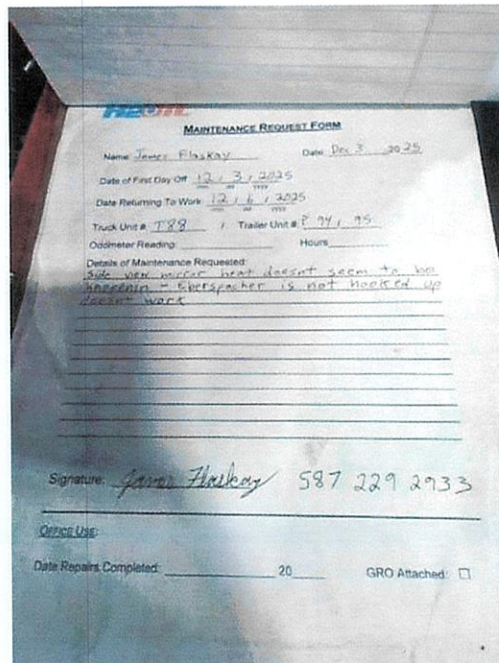 MAINTENANCE REQUEST FORM
Name: James Flaskay Date: Dec 3 2025
Date of First Day Off 12, 3, 2025
Date Returning To Work 12, 6, 2025
Truck Unit # T88 / Trailer Unit # P 94, 95
Odometer Reading: Hours
Details of Maintenance Requested:
Side view mirror heat doesnt seem to be
- Eberspacher is not hooked up
doesnt work
Signature: James Flaskay 587 229 2933
OFFICE USE:
Date Repairs Completed: 20 GRO Attached: ☐